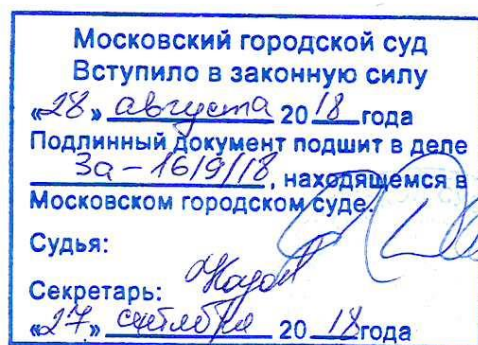 Московский городской суд
Вступило в законную силу
«28» августа 2018 года
Подлинный документ подшит в деле
3а-1619/18, находящемся в
Московском городском суде.
Судья:
Секретарь:
«27» сентября 2018 года